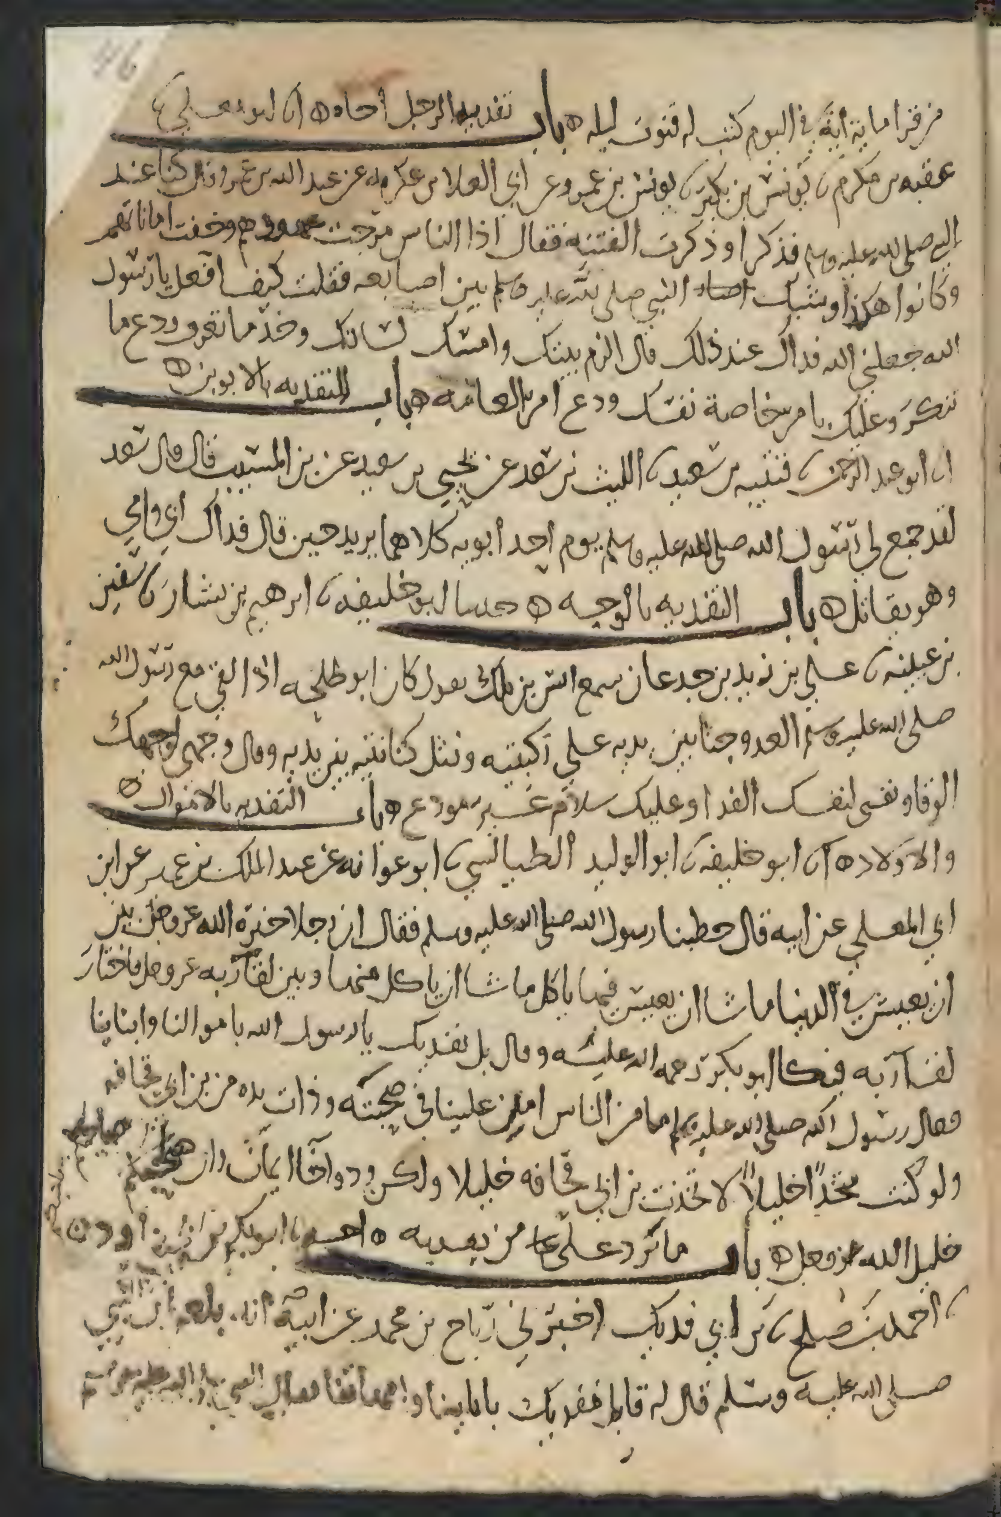 من قرا ماية اية في اليوم كتب له قنوت ليله ه باب تفديه الرجل اخاه ه انا ابو يعلى
عقبه بن مكرم يونس بن بكير يونس بن عمرو عن ابي العلا عن عكرمه عن عبد الله بن عمرو قال كنا عند
النبي صلى الله عليه وسلم فذكرا وذكرت الفتنة فقال اذا الناس مرجت عهودهم وخفت اماناتهم
وكانوا هكذا وشبك النبي صلى الله عليه وسلم بين اصابعه فقلت كيف افعل يا رسول
الله جعلني الله فداك عند ذلك قال الزم بيتك وامسك لسانك وخذ ما تعرف ودع ما
تنكر وعليك بامر خاصة نفسك ودع امر العامه ه باب التفديه بالابوين ه
انا ابو عبد الرحمن قتيبه بن سعيد الليث بن سعد عن يحيى بن سعيد عن بن المسيب قال قال سعد
لقد جمع لي رسول الله صلى الله عليه وسلم يوم احد ابويه كلاهما يريد حين قال فداك ابي وامي
وهو يقاتل ه باب التفديه بالوجه ه حدثنا ابو خليفه ابرهيم بن بشار سفين
بن عيينه علي بن زيد بن جدعان سمع انس بن ملك يقول كان ابو طلحه اذا لقي مع رسول الله
صلى الله عليه وسلم العدو جثا بين يديه على ركبتيه ونثل كنانته بين يديه وقال وجهي لوجهك
الوقا ونفسي لنفسك الفدا وعليك سلام غير مودع ه باب التفديه بالاموال ه
والاولاد ه انا ابو خليفه ابو الوليد الطيالسي ابو عوانه عن عبد الملك بن عمير عن ابن
ابي المعلى عن ابيه قال خطبنا رسول الله صلى الله عليه وسلم فقال ان رجلا خيره الله عز وجل بين
ان يعيش في الدنيا ما شا ان يعيش فيها ياكل ما شا ان ياكل منها وبين لقآ ربه عز وجل فاختار
لقآ ربه فبكا ابو بكر رحمه الله عليه وقال بل نفديك يا رسول الله باموالنا وابناينا
فقال رسول الله صلى الله عليه وسلم ما من الناس امن علينا في صحبته وذات يده من بن ابي قحافه
ولو كنت متخذا خليلا لاتخذت بن ابي قحافه خليلا ولكن ود واخا ايمان وان صاحبكم
خليل الله عز وجل ه باب ما يرد على من يفديه ه ابو بكر بن
احمد بن صلح بن ابي فديك اخبرني رباح بن محمد عن ابيه انه بلغه ان النبي
صلى الله عليه وسلم قال له قايل نفديك باباينا وامهاتنا فقال النبي صلى الله عليه وسلم